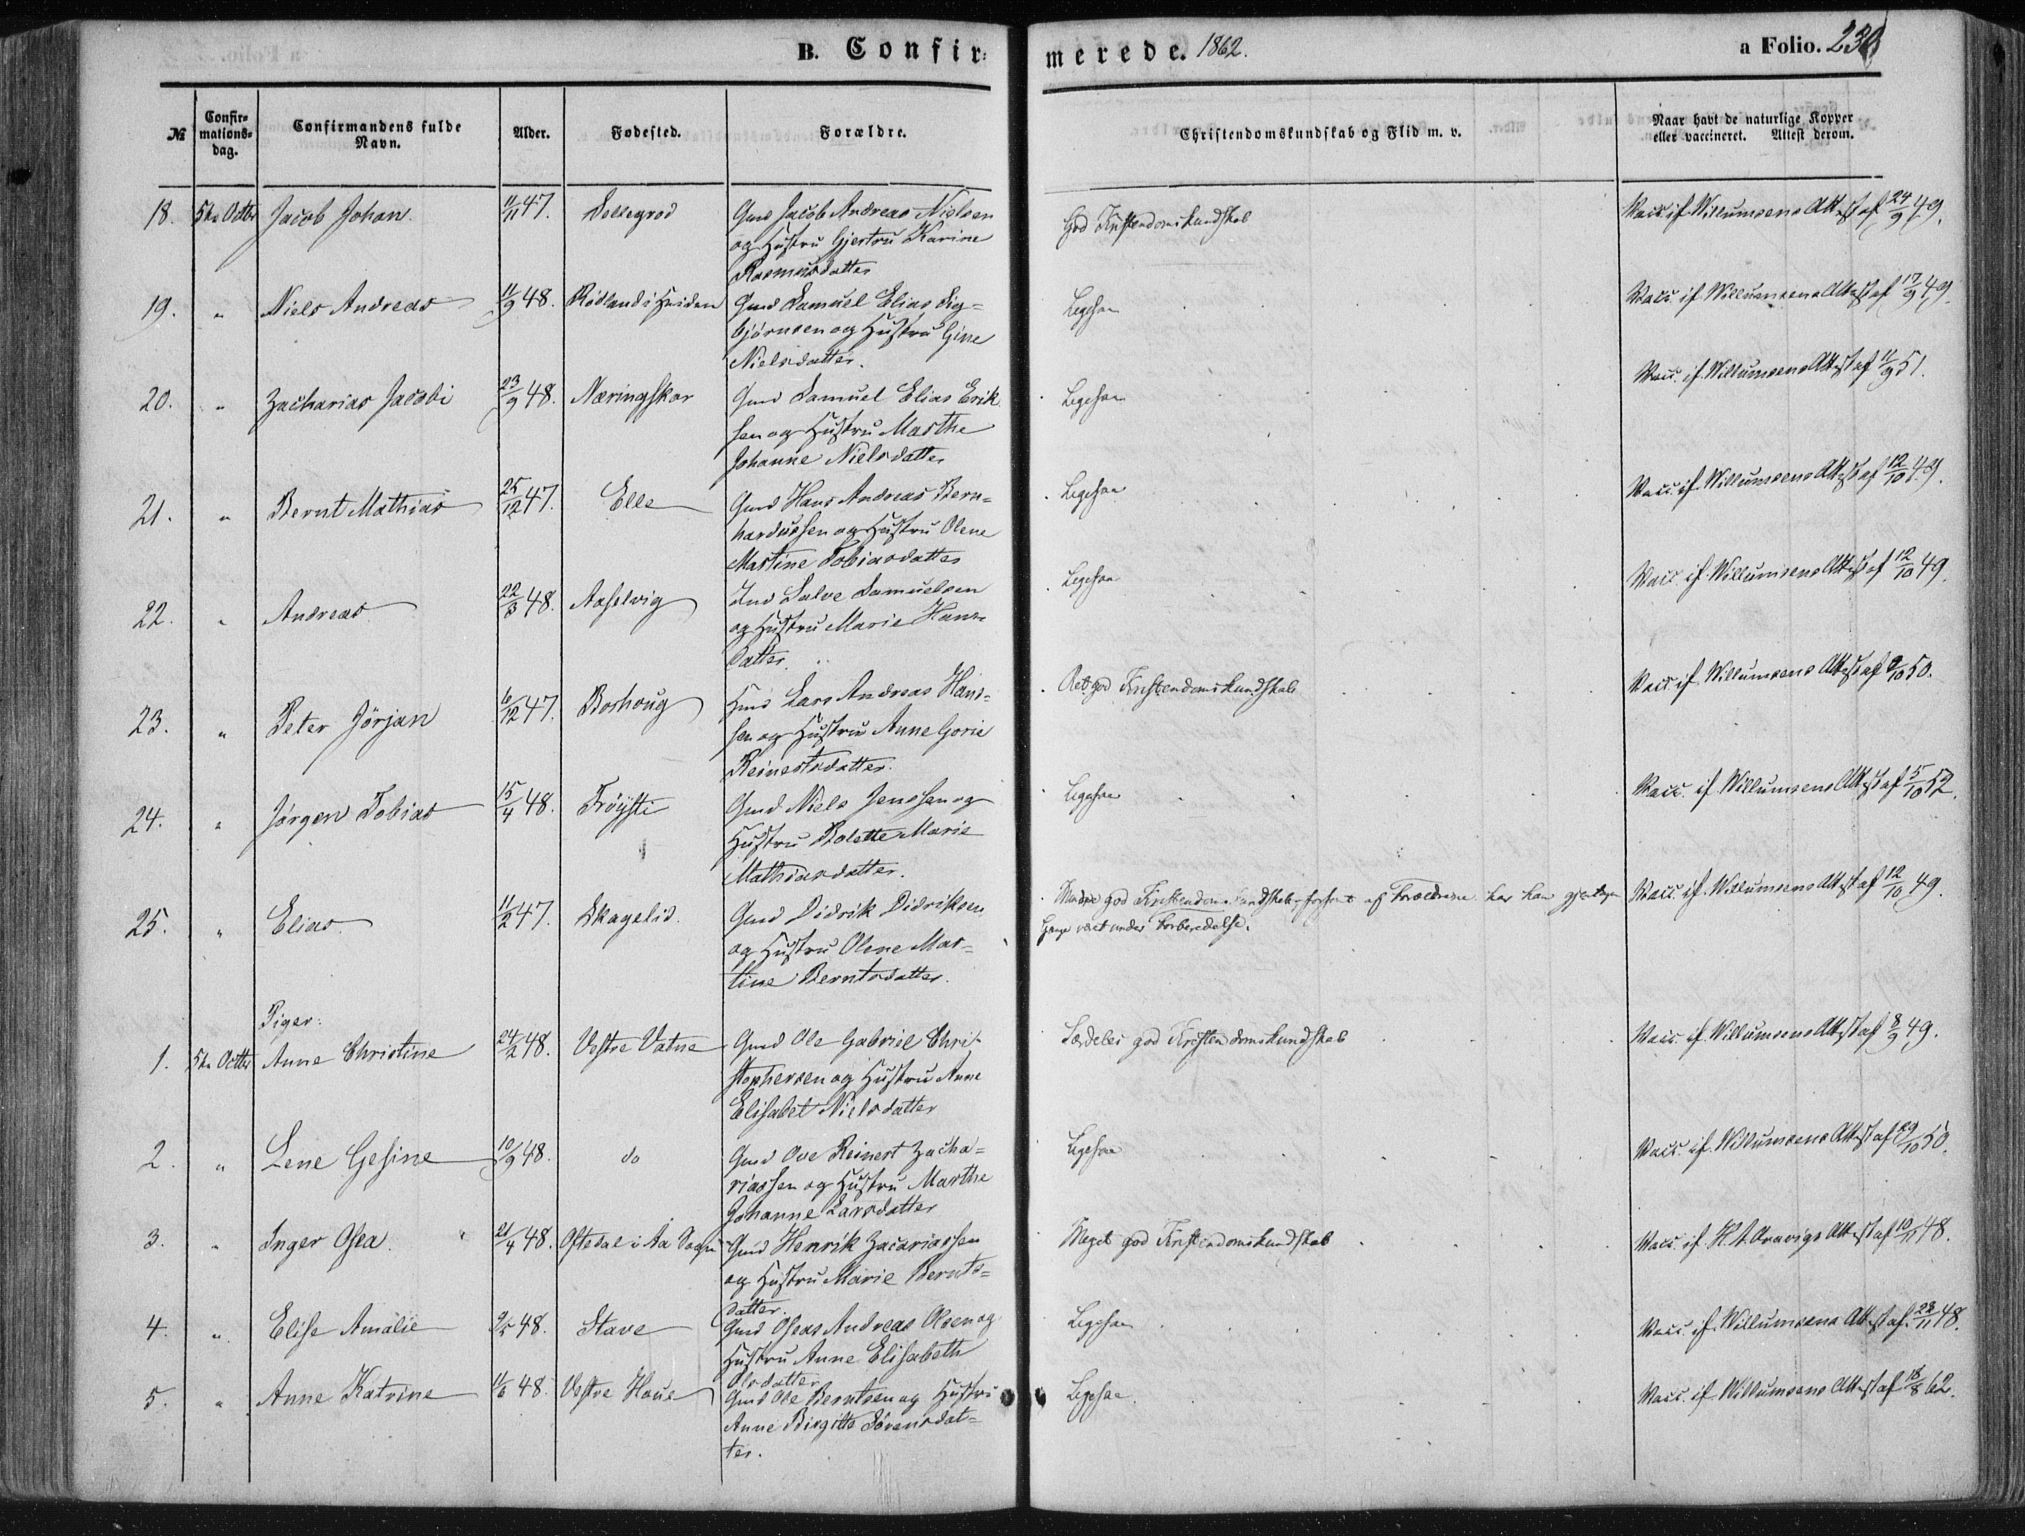 B. Confirmerede. 1862.
a Folio. 230
№
Confirmations-dag.
Confirmandens fulde Navn.
Alder.
Fødested.
Forældre.
Christendomskundskab og Flid m. v.
Naar havt de naturlige Kopper eller vaccineret. Attest derom.
18. 5te Octbr Jacob Johan. 11/11 47. Gmd Jacob Andreas Nielsen God Kristendomskundskab Vacc. if. Willumsens Attest af 24/9 49.
og Hustru Gjertru Karine
Rasmusdatter
19. " Niels Andreas 11/9 48. Rødland i Gmd Samuel Elias Sig= Ligesaa Vacc. if. Willumsens Attest af 17/9 49.
bjørnsen og Hustru Gine
Nielsdatter.
20. " Zacharias Jacobi 23/9 48. Næringskar Gmd Samuel Elias Erik Ligesaa Vacc. if. Willumsens Attest af 11/9 51.
sen og Hustru Marthe
Johanne Nielsdatter
21. " Bernt Mathias 25/12 47. Elle Gmd Hans Andreas Bern= Ligesaa Vacc. if. Willumsens Attest af 12/10 49.
hardussen og Hustru Olene
Martine Tobiasdatter
22. " Andreas 22/3 48. Aaselvig Ind Salve Samuelsen Ligesaa Vacc. if. Willumsens Attest af 12/10 49.
og Hustru Marie Hans=
datter.
23. " Peter Jørjan 6/12 47. Boshoug Hmd Lars Andreas Han= Ret god Kristendomskundskab Vacc. if. Willumsens Attest af 9/10 50.
sen og Hustru Anne Gorie
Reinertsdatter.
24. " Jørgen Tobias 15/4 48. Trøysti Gmd Niels Jenssen og Ligesaa Vacc. if. Willumsens Attest af 5/10 52.
Hustru Bolette Marie
Mathiasdatter.
25. " Elias 11/2 47. Skagelid. Gmd Didrik Didriksen Mindre god Kristendomskundskab, forsømt af Forældrene har han gjentagne Vacc. if. Willumsens Attest af 12/10 49.
og Hustru Olene Mar= Gange været under Forberedelse.
tine Berntsdatter.
Piger:
1. 5te Octbr Anne Christine 24/2 48. Vestre Vatne Gmd Ole Gabriel Chri= Særdeles god Kristendomskundskab Vacc. if. Willumsens Attest af 8/9 49.
stophersen og Hustru Anne
Elisabet Nielsdatter
2. " Lene Gesine 10/9 48. do Gmd Ove Reinert Zacha= Ligesaa Vacc. if. Willumsens Attest af 29/10 50.
riassen og Hustru Marthe
Johanne Larsdatter
3. " Inger Osea. 21/4 48. Oftedal i Aa Sogn Gmd Henrik Zacariassen Meget god Kristendomskundskab Vacc. if. Aravigs Attest af 10/11 48.
og Hustru Marie Bernts=
datter.
4. " Elise Amalie 9/5 48. Stave Gmd Oseas Andreas Olsen og Ligesaa Vacc. if. Willumsens Attest af 22/11 48.
Hustru Anne Elisabeth
Olsdatter
5. " Anne Katrine 11/6 48. Vestre Haue Gmd Ole Berntsen og Hustru Ligesaa Vacc. if. Willumsens Attest af 18/8 62.
Anne Birgitte Sørensdat=
ter.